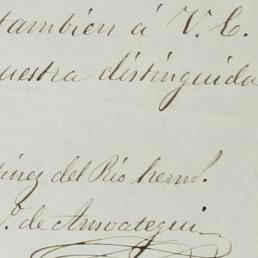 también á V. E.
uestra distinguida
tinez del Rio herm.
P. de Ansoategui